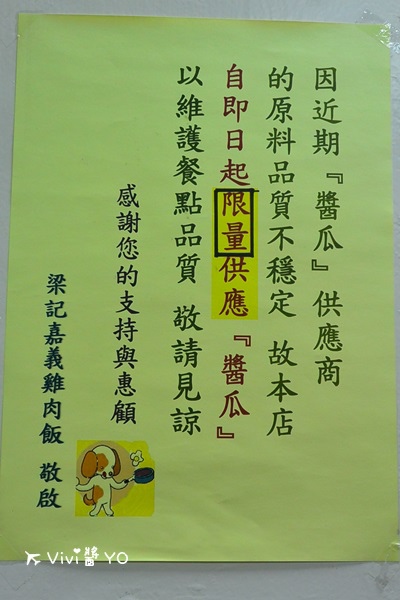 因近期『醬瓜』供應商
的原料品質不穩定 故本店
自即日起限量供應『醬瓜』
以維護餐點品質 敬請見諒
感謝您的支持與惠顧
梁記嘉義雞肉飯 敬啟
Vivi醬YO